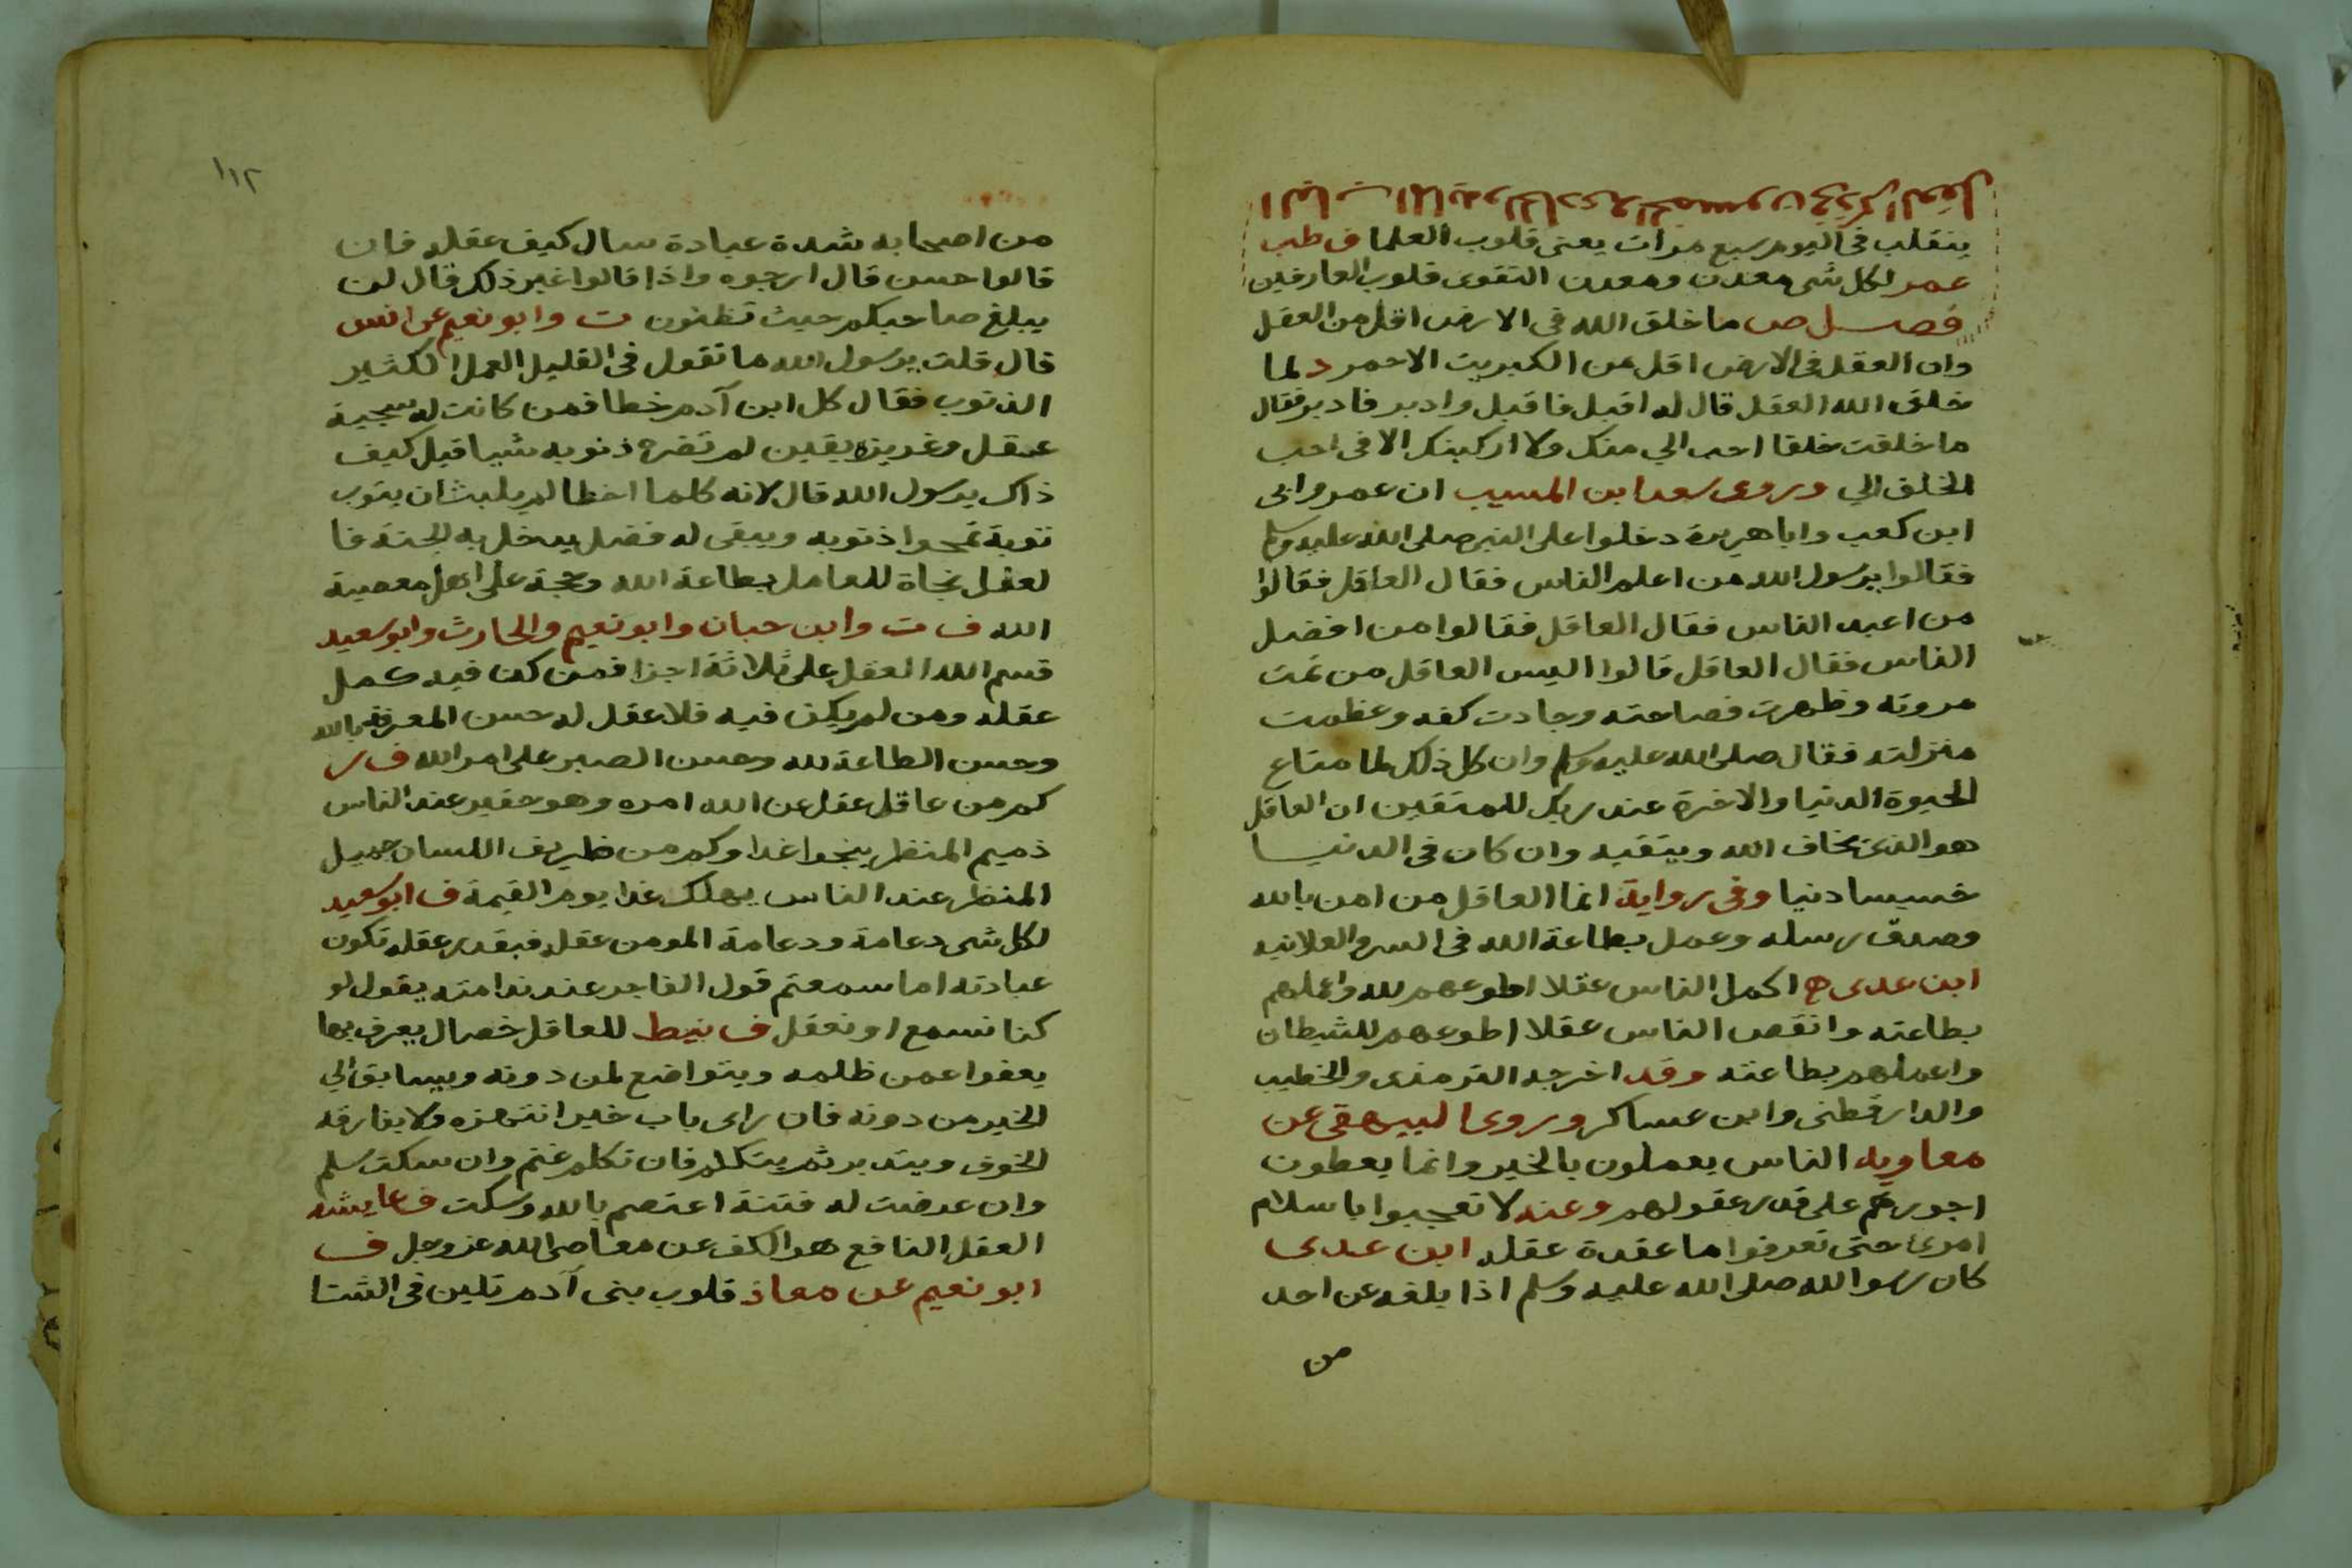 الباب المايه والحادي والخمسون في ذكر العقل
يتقلب في اليوم سبع مرات يعنى قلوب العلما ف طب
عمر لكل شى معدن ومعدن التقوى قلوب العارفين
فصل ص ما خلق الله في الارض اقل من العقل
وان العقل في الارض اقل من الكبريت الاحمر د لما
خلق الله العقل قال له اقبل فاقبل وادبر فادبر فقال
ما خلقت خلقا احب الي منك ولا اركبنك الا في احب
الخلق الي وروى سعد ابن المسيب ان عمر وابى
ابن كعب وابا هريرة دخلوا على النبى صلى الله عليه وسلم
فقالوا يرسول الله من اعلم الناس فقال العاقل فقالوا
من اعبد الناس فقال العاقل فقالوا من افضل
الناس فقال العاقل قالوا اليس العاقل من تمت
مروته وظهرت فصاحته وجادت كفه وعظمت
منزلته فقال صلى الله عليه وسلم وان كل ذلك لما متاع
الحيوة الدنيا والاخرة عند ربك للمتقين ان العاقل
هو الذى يخاف الله ويتقيه وان كان في الدنيا
خسيسا دنيا وفي رواية انما العاقل من امن بالله
وصدق رسله وعمل بطاعة الله في السر والعلانيه
ابن عدى ح اكمل الناس عقلا اطوعهم لله واعملهم
بطاعته وانقص الناس عقلا اطوعهم للشيطان
واعملهم بطاعته وقد اخرجه الترمذى والخطيب
والدارقطنى وابن عساكر وروى البيهقى عن
معاويه الناس يعملون بالخير وانما يعطون
اجورهم على قدر عقولهم وعنه لا تعجبوا باسلام
امرئ حتى تعرفوا ما عقدة عقله ابن عدى
كان رسوالله صلى الله عليه وسلم اذا بلغه عن احد
من
١١٢
من اصحابه شدة عبادة سال كيف عقله فان
قالوا حسن قال ارجوه واذا قالوا غير ذلك قال لن
يبلغ صاحبكم حيث تظنون ت وابو نعيم عن انس
قال قلت يرسول الله ما تقول في القليل العمل الكثير
الذنوب فقال كل ابن آدم خطا فمن كانت له سجية
عقل وغريزة يقين لم تضره ذنوبه شيا قيل كيف
ذاك يرسول الله قال لانه كلما اخطا لم يلبث ان يتوب
توبة تمحوا ذنوبه ويبقى له فضل يدخل به الجنة فا
لعقل نجاة للعامل بطاعة الله وحجة على اهل معصية
الله ف ت وابن حبان وابو نعيم والحارث وابو سعيد
قسم الله العقل على ثلاثة اجزا فمن كن فيه كمل
عقله ومن لم يكن فيه فلا عقل له حسن المعرفة بالله
وحسن الطاعة لله وحسن الصبر على امر الله ف ر
كم من عاقل عقل عن الله امره وهو حقير عند الناس
ذميم المنظر ينجوا غدا وكم من ظريف اللسان جميل
المنظر عند الناس يهلك غدا يوم القيمة ف ابو سعيد
لكل شى دعامة ودعامة المومن عقله فبقدر عقله تكون
عبادته اما سمعتم قول الفاجر عند ندامته يقول لو
كنا نسمع او نعقل ف نيط للعاقل خصال يعرف بها
يعفوا عمن ظلمه ويتواضع لمن دونه ويسابق الي
الخير من دونه فان راى باب خير انتهزه ولا يفارقه
الخوف ويتدبر ثم يتكلم فان تكلم غنم وان سكت سلم
وان عرضت له فتنة اعتصم بالله وسكت ف عايشه
العقل النافع هو الكف عن معاصى الله عز وجل ف
ابو نعيم عن معاذ قلوب بنى آدم تلين في الشتا